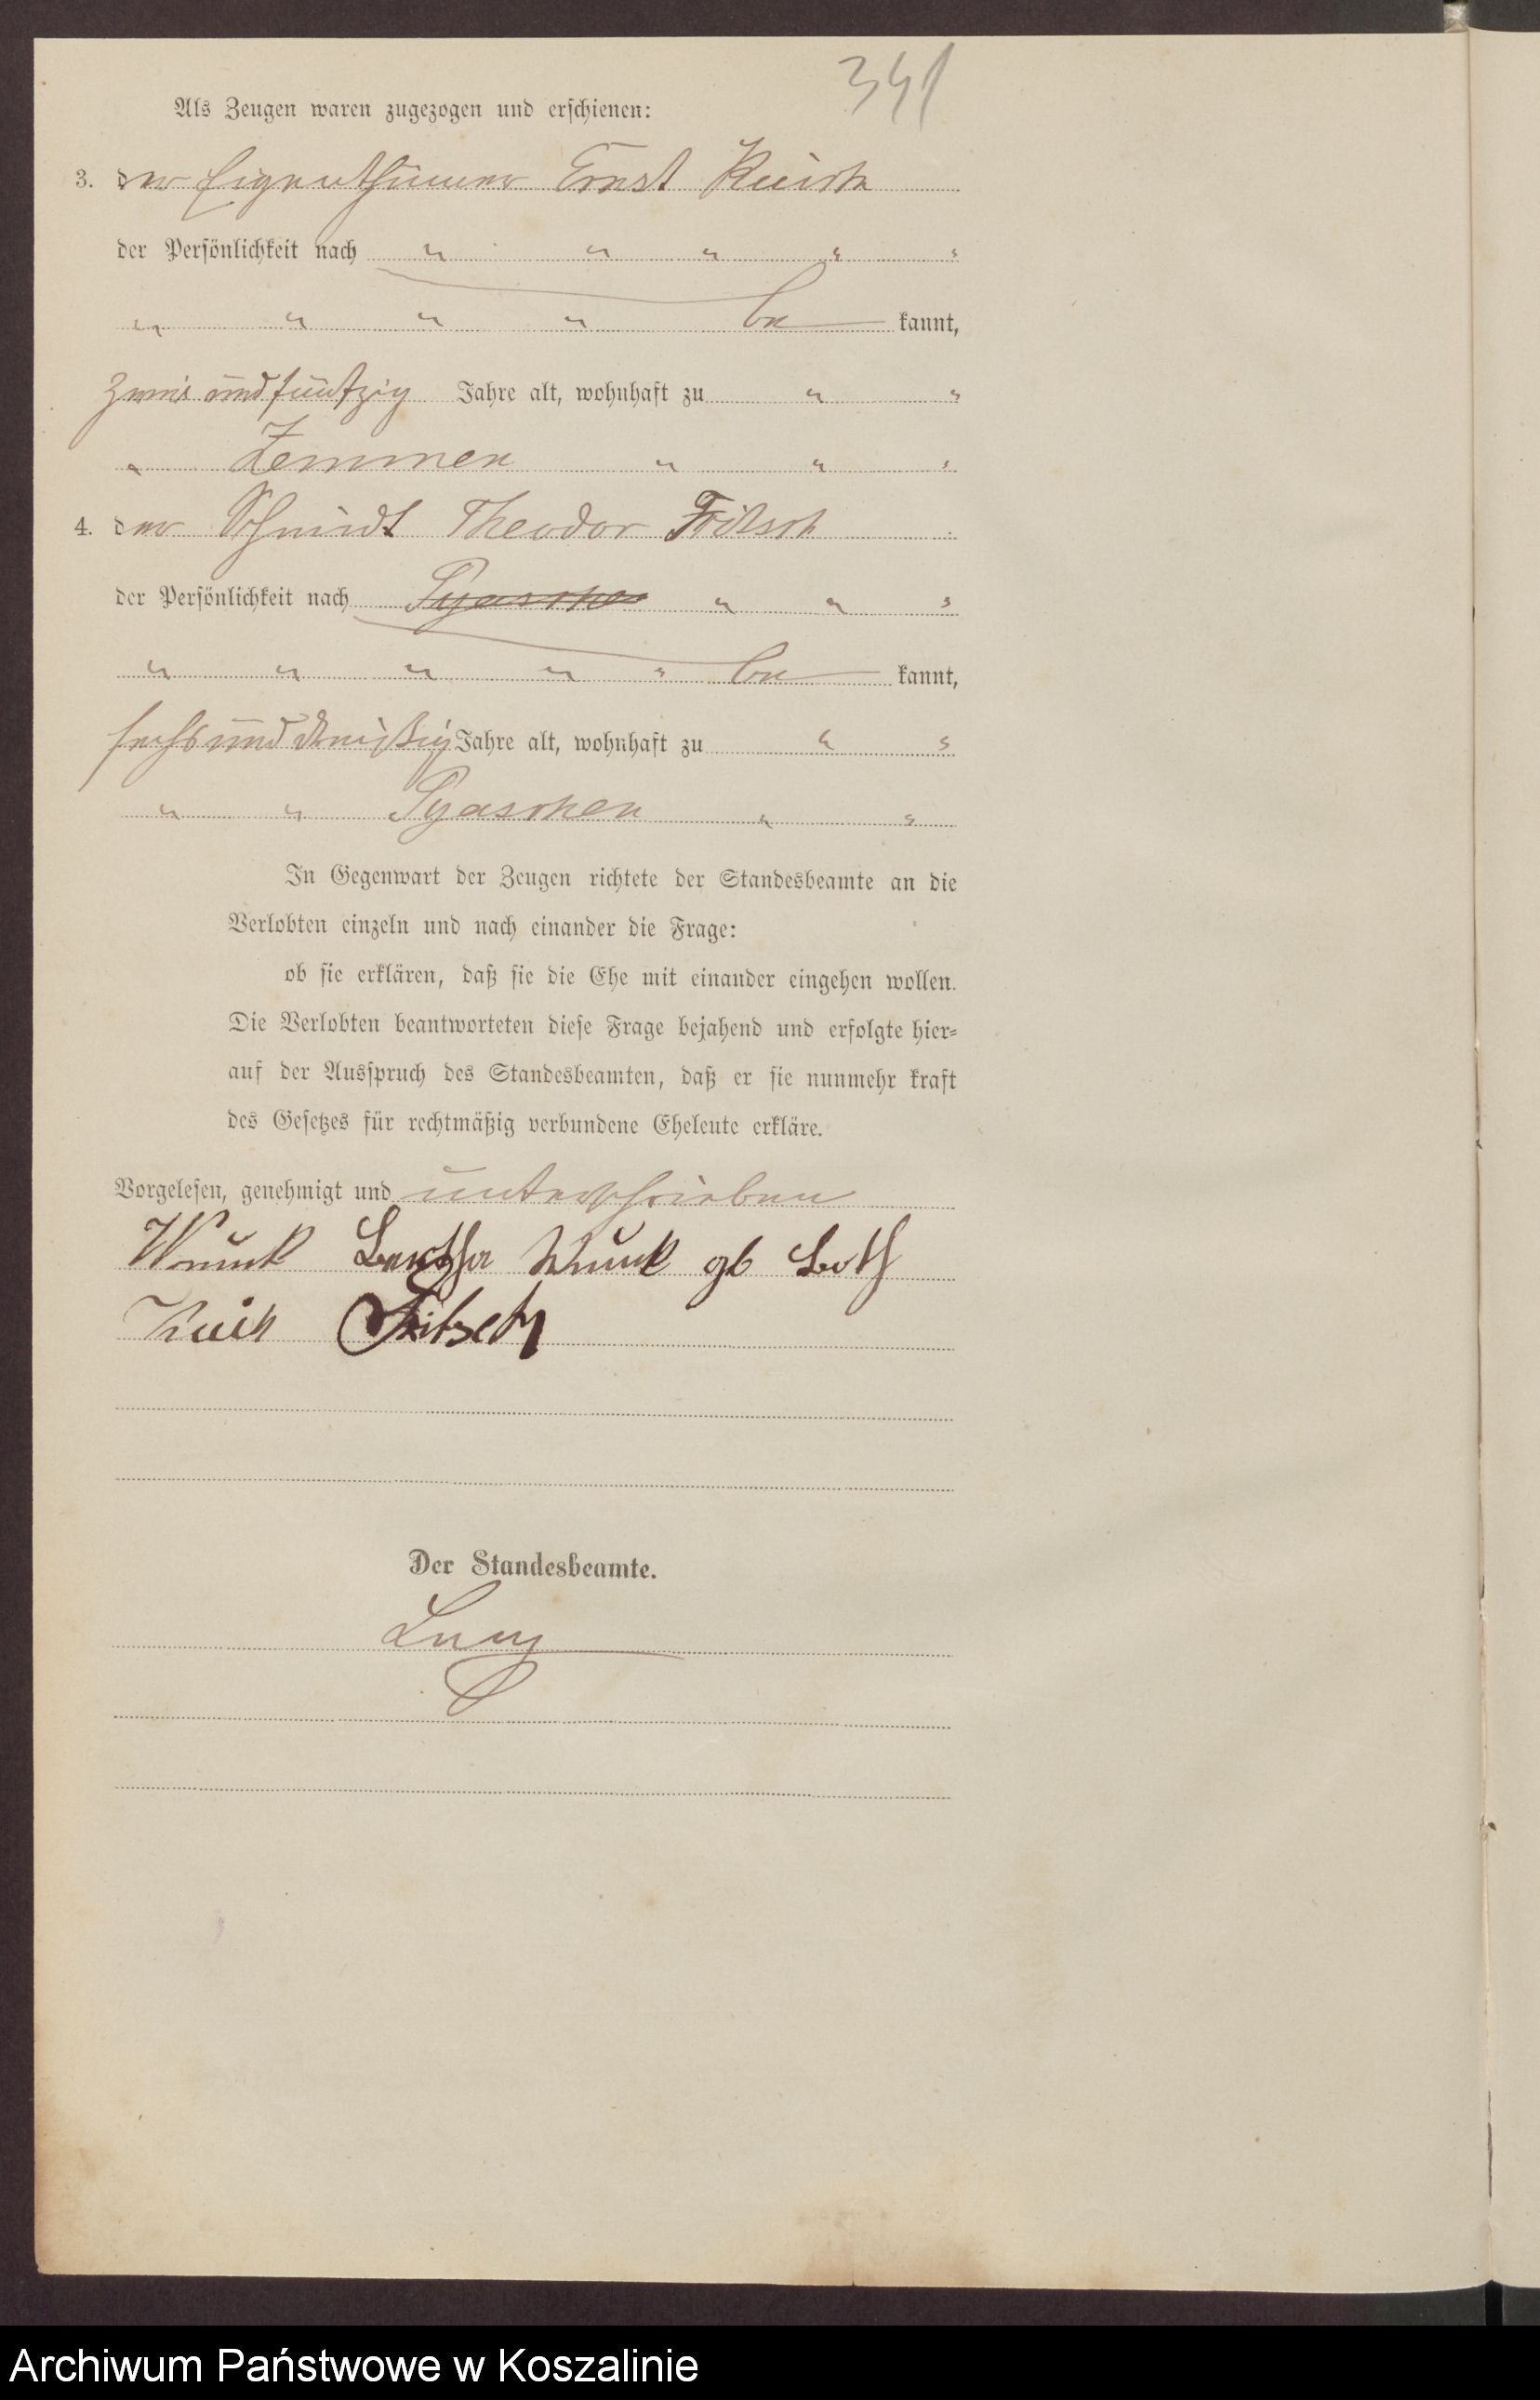 341
Als Zeugen waren zugezogen und erschienen:
3. der Eigenthümer Ernst
der Persönlichkeit nach " " " " "
" " " " be kannt,
zwei und fünfzig Jahre alt, wohnhaft zu " "
" Zemmen " " "
4. der Schmidt Theodor Fritsch
der Persönlichkeit nach " " "
" " " " " be kannt,
sechs und dreißig Jahre alt, wohnhaft zu " "
" " Pyaschen " "
In Gegenwart der Zeugen richtete der Standesbeamte an die
Verlobten einzeln und nach einander die Frage:
ob sie erklären, daß sie die Ehe mit einander eingehen wollen.
Die Verlobten beantworteten diese Frage bejahend und erfolgte hier=
auf der Ausspruch des Standesbeamten, daß er sie nunmehr kraft
des Gesetzes für rechtmäßig verbundene Eheleute erkläre.
Vorgelesen, genehmigt und unterschrieben
Bertha gb
Fritsch
Der Standesbeamte.
Archiwum Państwowe w Koszalinie